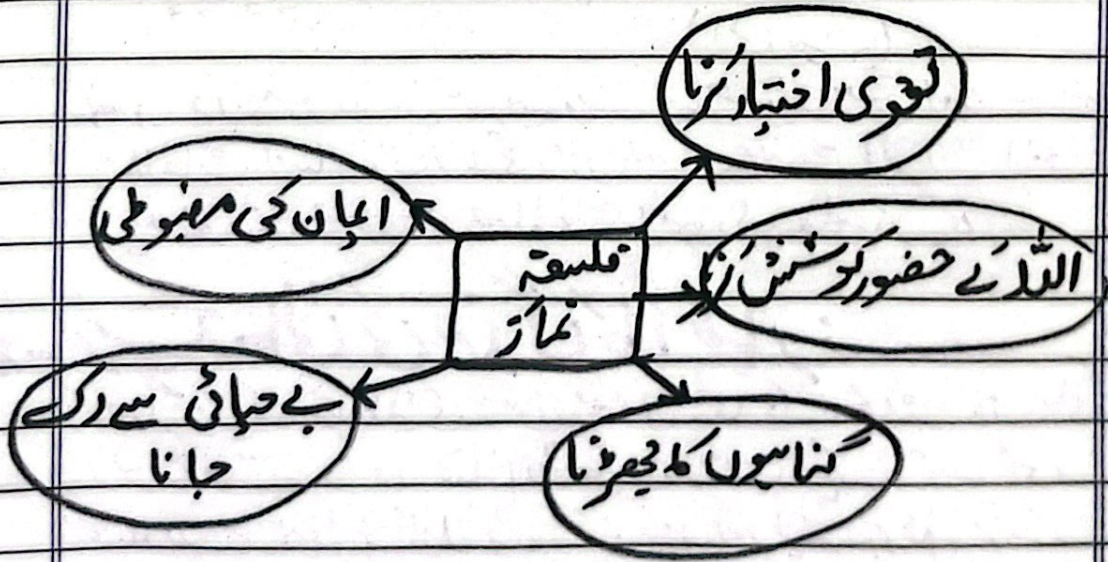 تقوی اختیار کرنا
ایمان کی مضبوطی
فلسفہ
نماز
اللہ کے حضور کوشش کرنا
بے حیائی سے رکے
جانا
گناہوں کا جھڑنا